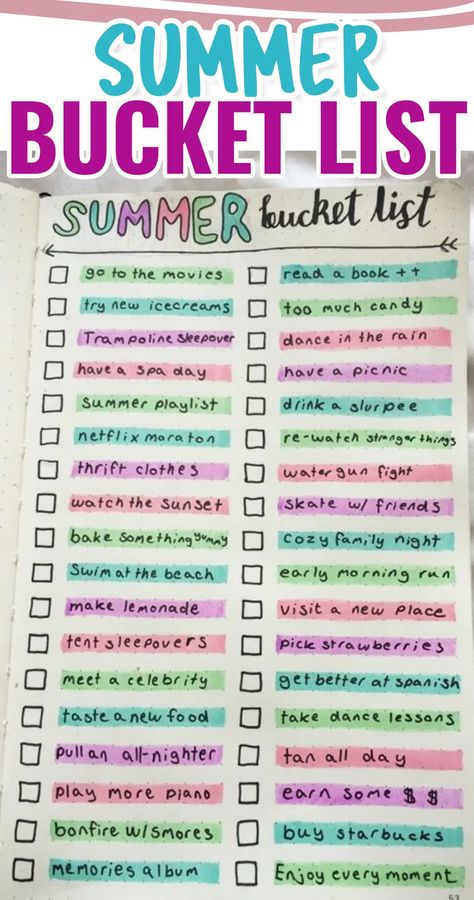 SUMMER
BUCKET LIST
SUMMER bucket list
go to the movies
try new icecreams
Trampoline sleepover
have a spa day
summer playlist
netflix maraton
thrift clothes
watch the sunset
bake something yummy
Swim at the beach
make lemonade
tent sleepovers
meet a celebrity
taste a new food
pull an all-nighter
play more piano
bonfire w/smores
memories album
read a book ++
too much candy
dance in the rain
have a picnic
drink a slurpee
re-watch stranger things
water gun fight
skate w/ friends
cozy family night
early morning run
visit a new place
pick strawberries
get better at spanish
take dance lessons
tan all day
earn some $ $
buy starbucks
Enjoy every moment
53